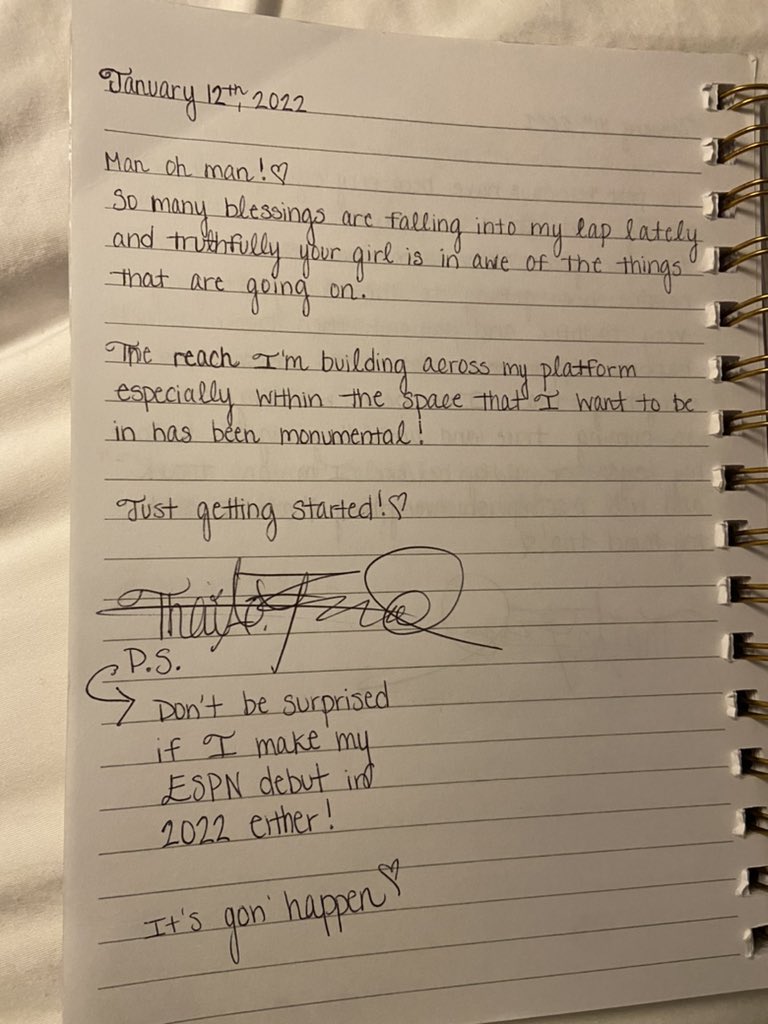 January 12th, 2022
Man oh man! ♡
So many blessings are falling into my lap lately
and truthfully your girl is in awe of the things
that are going on.
The reach I'm building across my platform
especially within the space that I want to be
in has been monumental!
Just getting started! ♡
P.S.
Don't be surprised
if I make my
ESPN debut in
2022 either!
It's gon' happen ♡